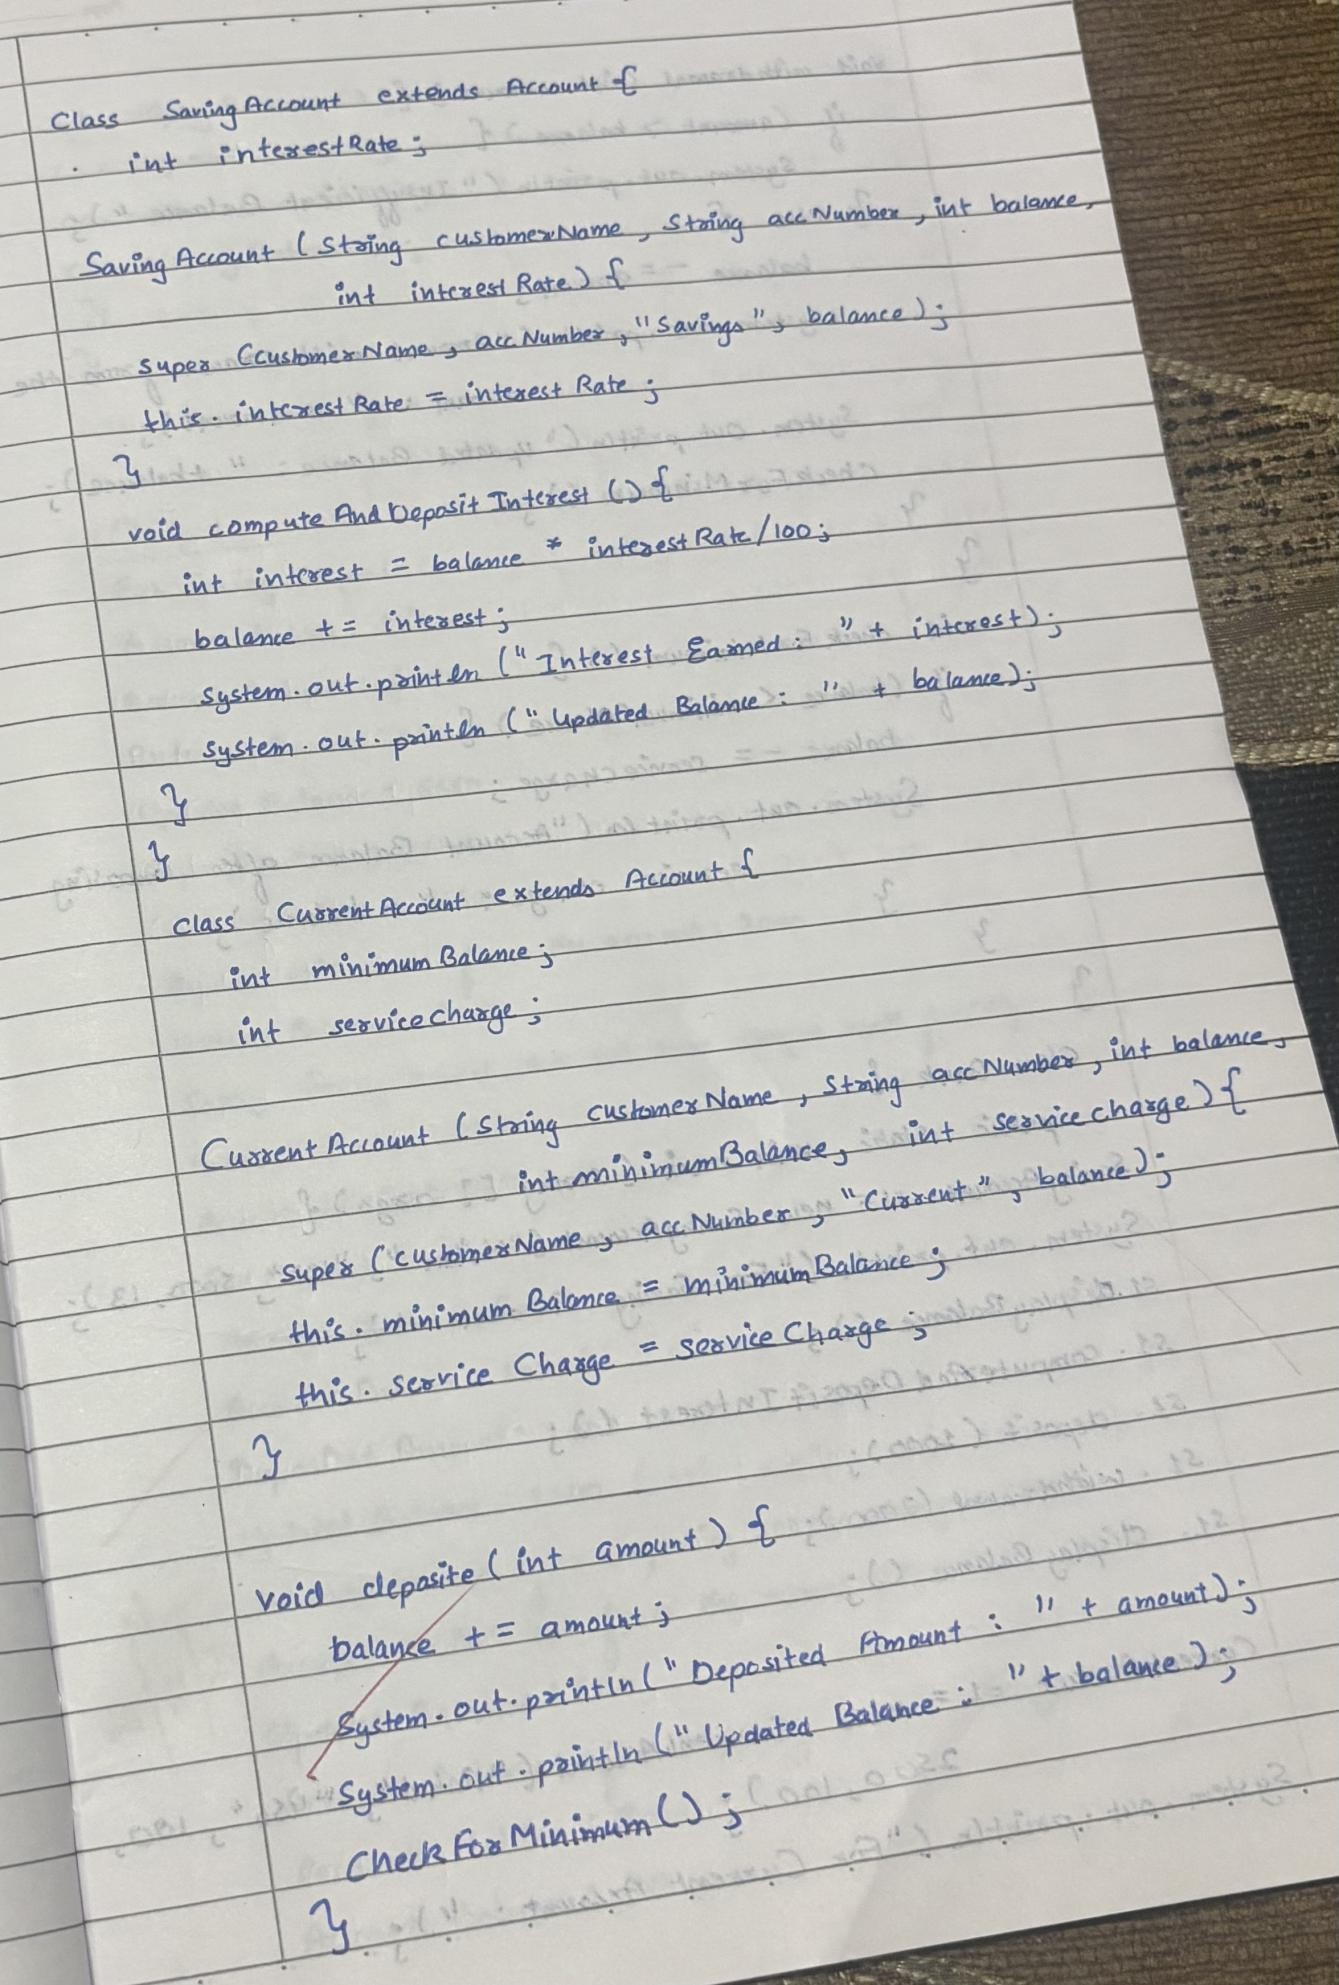 Class SavingAccount extends Account {
int interestRate;
SavingAccount (String customerName, String accNumber, int balance,
int interestRate) {
super (customerName, accNumber, "Savings", balance);
this.interestRate = interestRate;
}
void computeAndDepositInterest () {
int interest = balance * interestRate/100;
balance += interest;
System.out.println ("Interest Earned: " + interest);
System.out.println ("Updated Balance: " + balance);
}
}
class CurrentAccount extends Account {
int minimumBalance;
int servicecharge;
CurrentAccount (String customerName, String accNumber, int balance,
int minimumBalance, int servicecharge) {
super (customerName, accNumber, "Current", balance);
this.minimumBalance = minimumBalance;
this.serviceCharge = serviceCharge;
}
void deposite (int amount) {
balance += amount;
System.out.println ("Deposited Amount: " + amount);
System.out.println ("Updated Balance: " + balance);
CheckForMinimum();
}